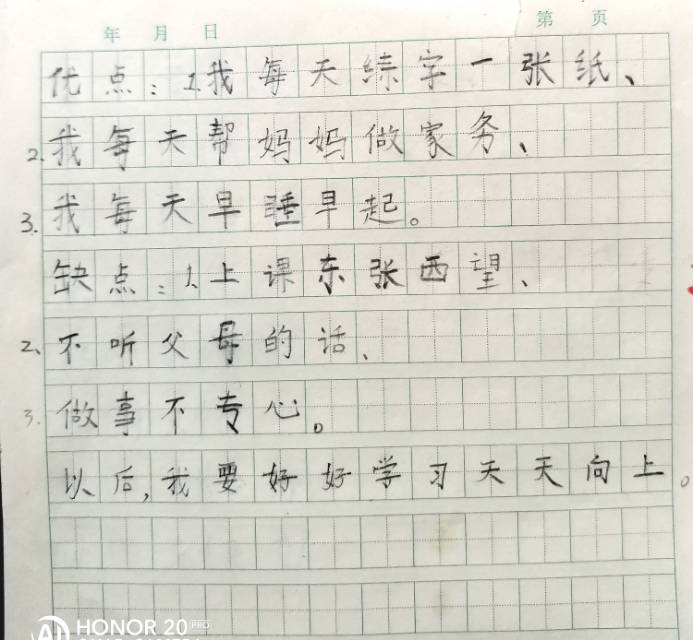 年 月 日 第 页
优点：1.我每天练字一张纸、
2.我每天帮妈妈做家务、
3.我每天早睡早起。
缺点：1.上课东张西望、
2、不听父母的话、
3.做事不专心。
以后,我要好好学习天天向上。
HONOR 20 PRO